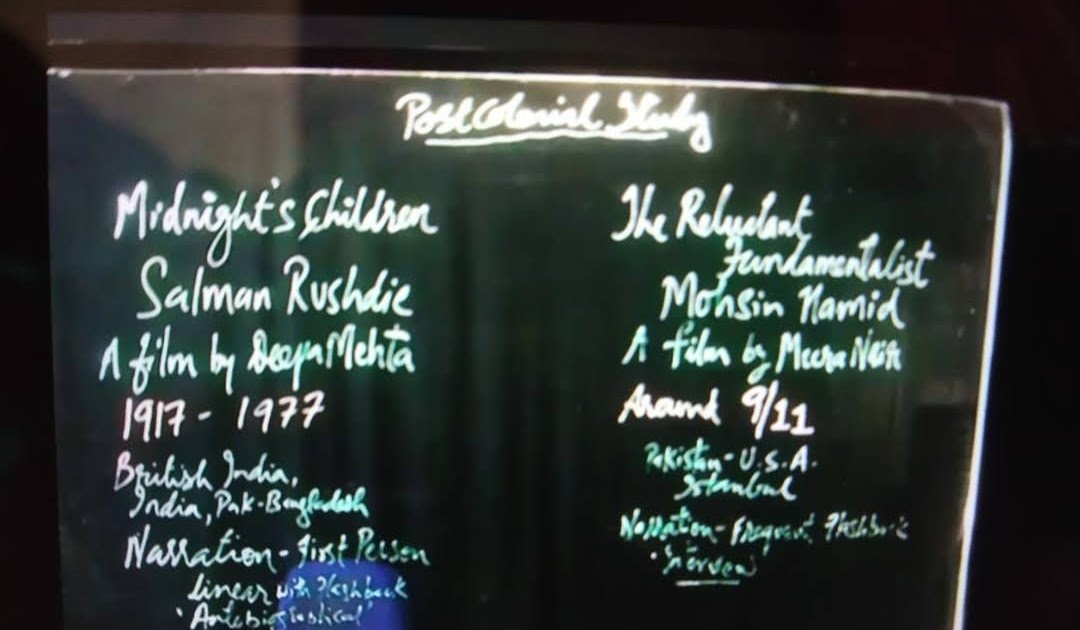 PostColonial Study
Midnight's Children
Salman Rushdie
A film by Deepa Mehta
1917 - 1977
British India,
India, Pak-Bangladesh
Narration - First Person
linear with Flashback
'Autobiographical'
The Reluctant
Fundamentalist
Mohsin Hamid
A film by Meera Nair
Around 9/11
Pakistan - U.S.A.
Istanbul
Narration - Frequent Flashback
'Interview'